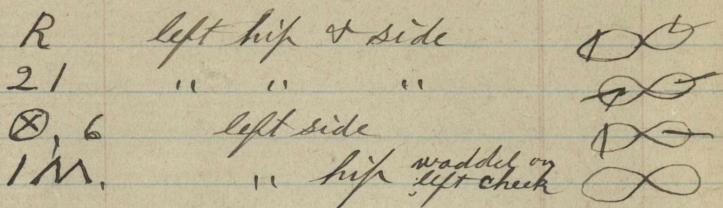 R left hip & side
21 " " "
Ⓧ, 6 left side
1M. " hip waddel on left cheek